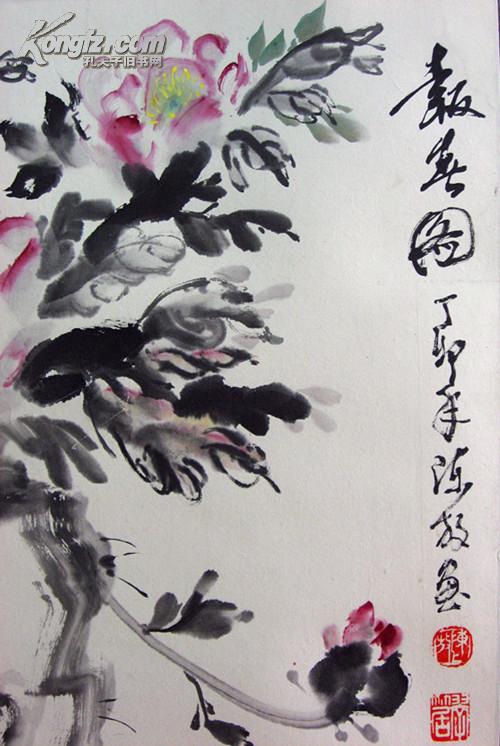 Kongfz.com
孔夫子旧书网
報春图
丁卯年陈放画